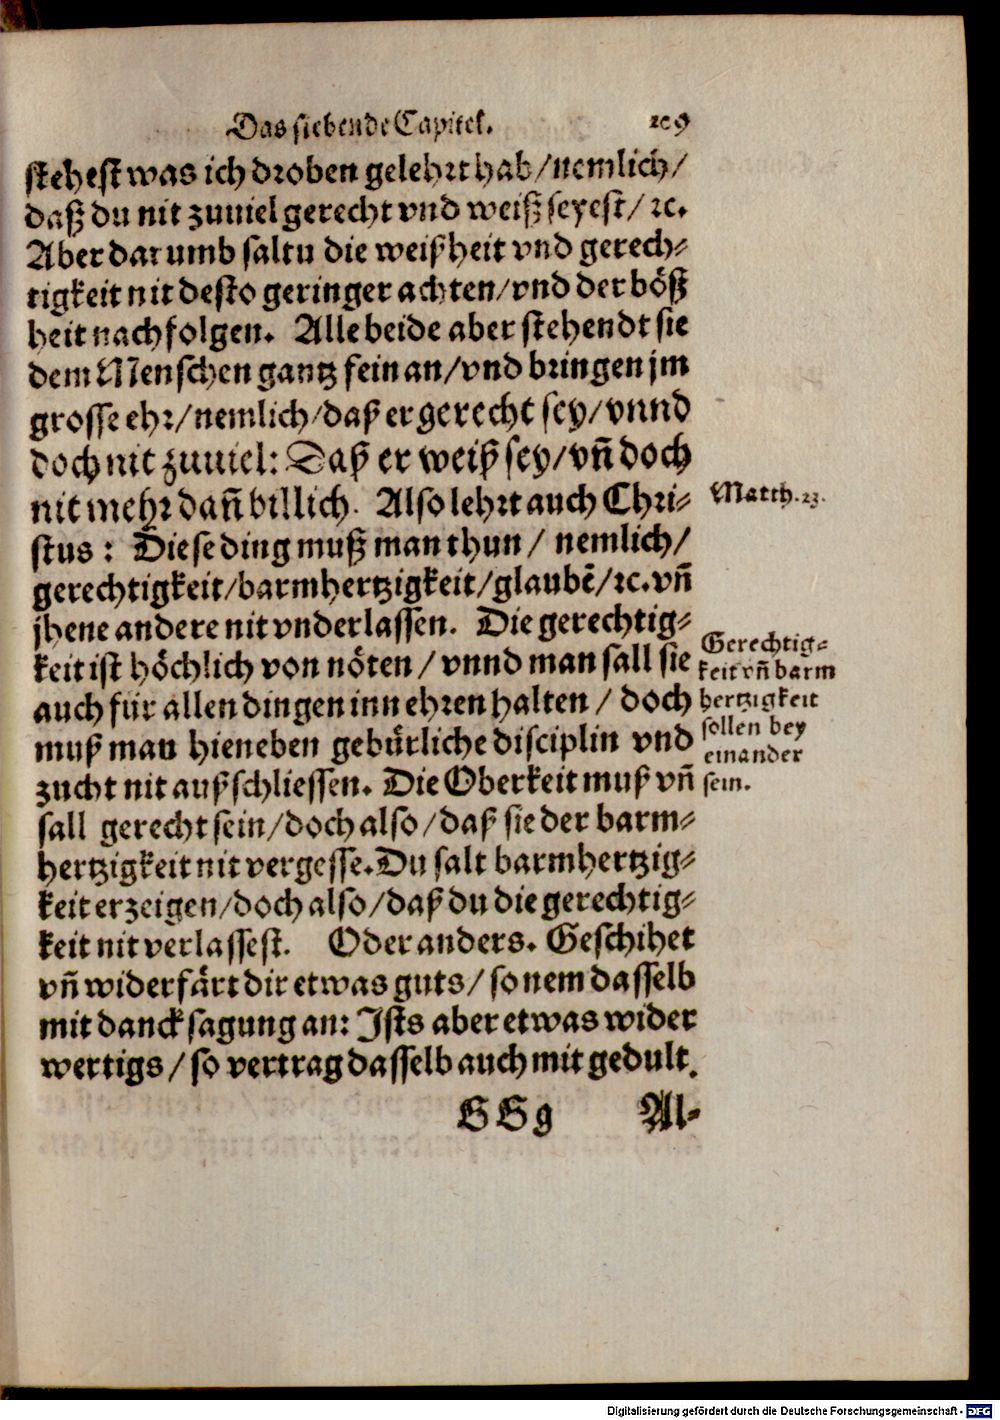 Das siebende Capitel. 109
stehest was ich droben gelehrt hab/nemlich/
daß du nit zuuiel gerecht vnd weiß seyest/ ꝛc.
Aber darumb saltu die weißheit vnd gerech-
tigkeit nit desto geringer achten/vnd der böß
heit nachfolgen. Alle beide aber stehendt sie
dem Menschen gantz fein an/vnd bringen jm
grosse ehr/nemlich/daß er gerecht sey/vnnd
doch nit zuuiel: Daß er weiß sey/vñ doch
nit mehr dañ billich. Also lehrt auch Chri-
stus: Diese ding muß man thun/ nemlich/
gerechtigkeit/barmhertzigkeit/glaubẽ/ꝛc.vñ
jhene andere nit vnderlassen. Die gerechtig-
keit ist höchlich von nöten/ vnnd man sall sie
auch für allen dingen inn ehren halten/ doch
muß man hieneben gebürliche disciplin vnd
zucht nit außschliessen. Die Oberkeit muß vñ
sall gerecht sein/doch also/daß sie der barm-
hertzigkeit nit vergesse. Du salt barmhertzig-
keit erzeigen/doch also/daß du die gerechtig-
keit nit verlassest. Oder anders. Geschihet
vñ widerfärt dir etwas guts/ so nem dasselb
mit dancksagung an: Ists aber etwas wider
wertigs/ so vertrag dasselb auch mit gedult.
Matth. 23.
Gerechtig-
keit vñ barm
hertzigkeit
sollen bey
einander
sein.
Al-
Digitalisierung gefördert durch die Deutsche Forschungsgemeinschaft - DFG